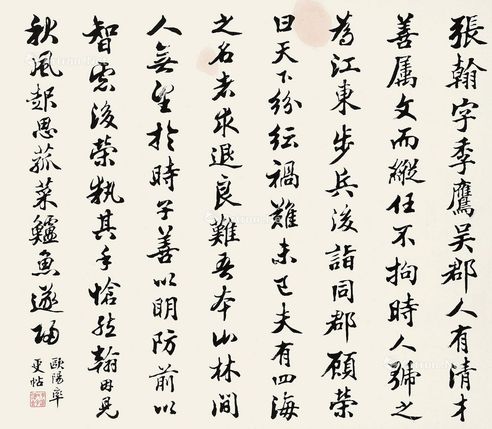 張翰字季鷹吴郡人有清才
善属文而縱任不拘時人號之
為江東步兵後詣同郡顧榮
曰天下紛紜禍難未已夫有四海
之名者求退良難吾本山林間
人無望於時子善以明防前以
智慮後榮執其手愴然翰因見
秋風起思菰菜鱸魚遂歸
歐陽率
更帖